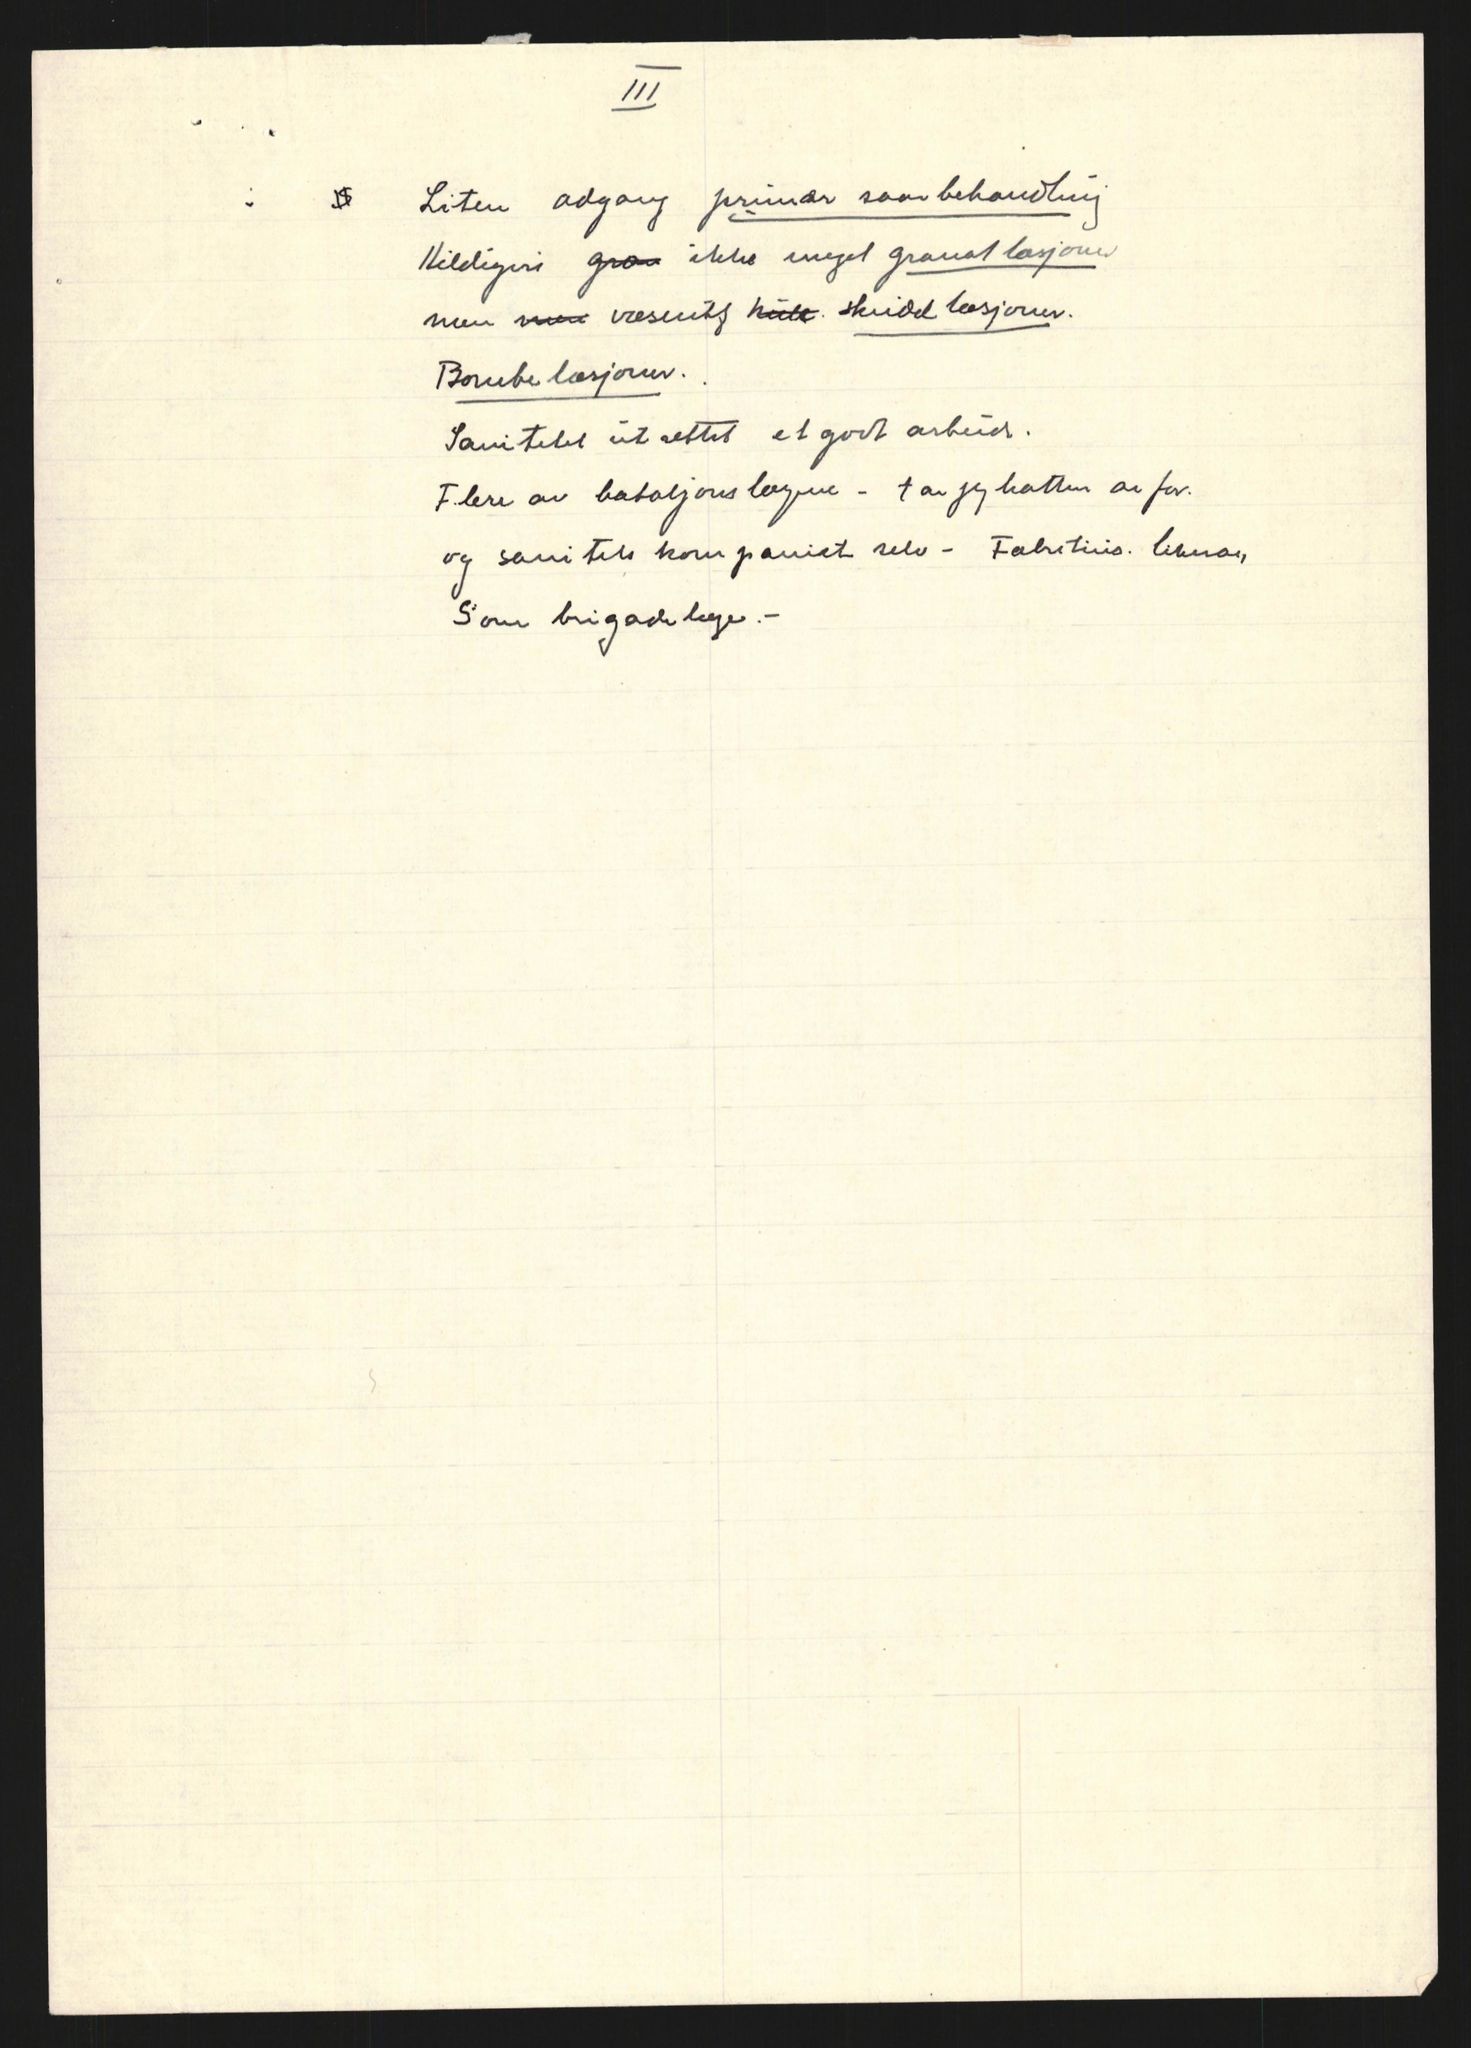 III
Liten adgang primær saarbehandling
Heldigvis gran ikke meget granatlæsjoner
men men væsentlig skudd læsjoner.
Bombe læsjoner.
Sanitetet utrettet et godt arbeide.
Flere av bataljonslægene - tar jeg hatten av for.
og sanitetskompaniet selv - Fabritius.
Som brigadelæge.-